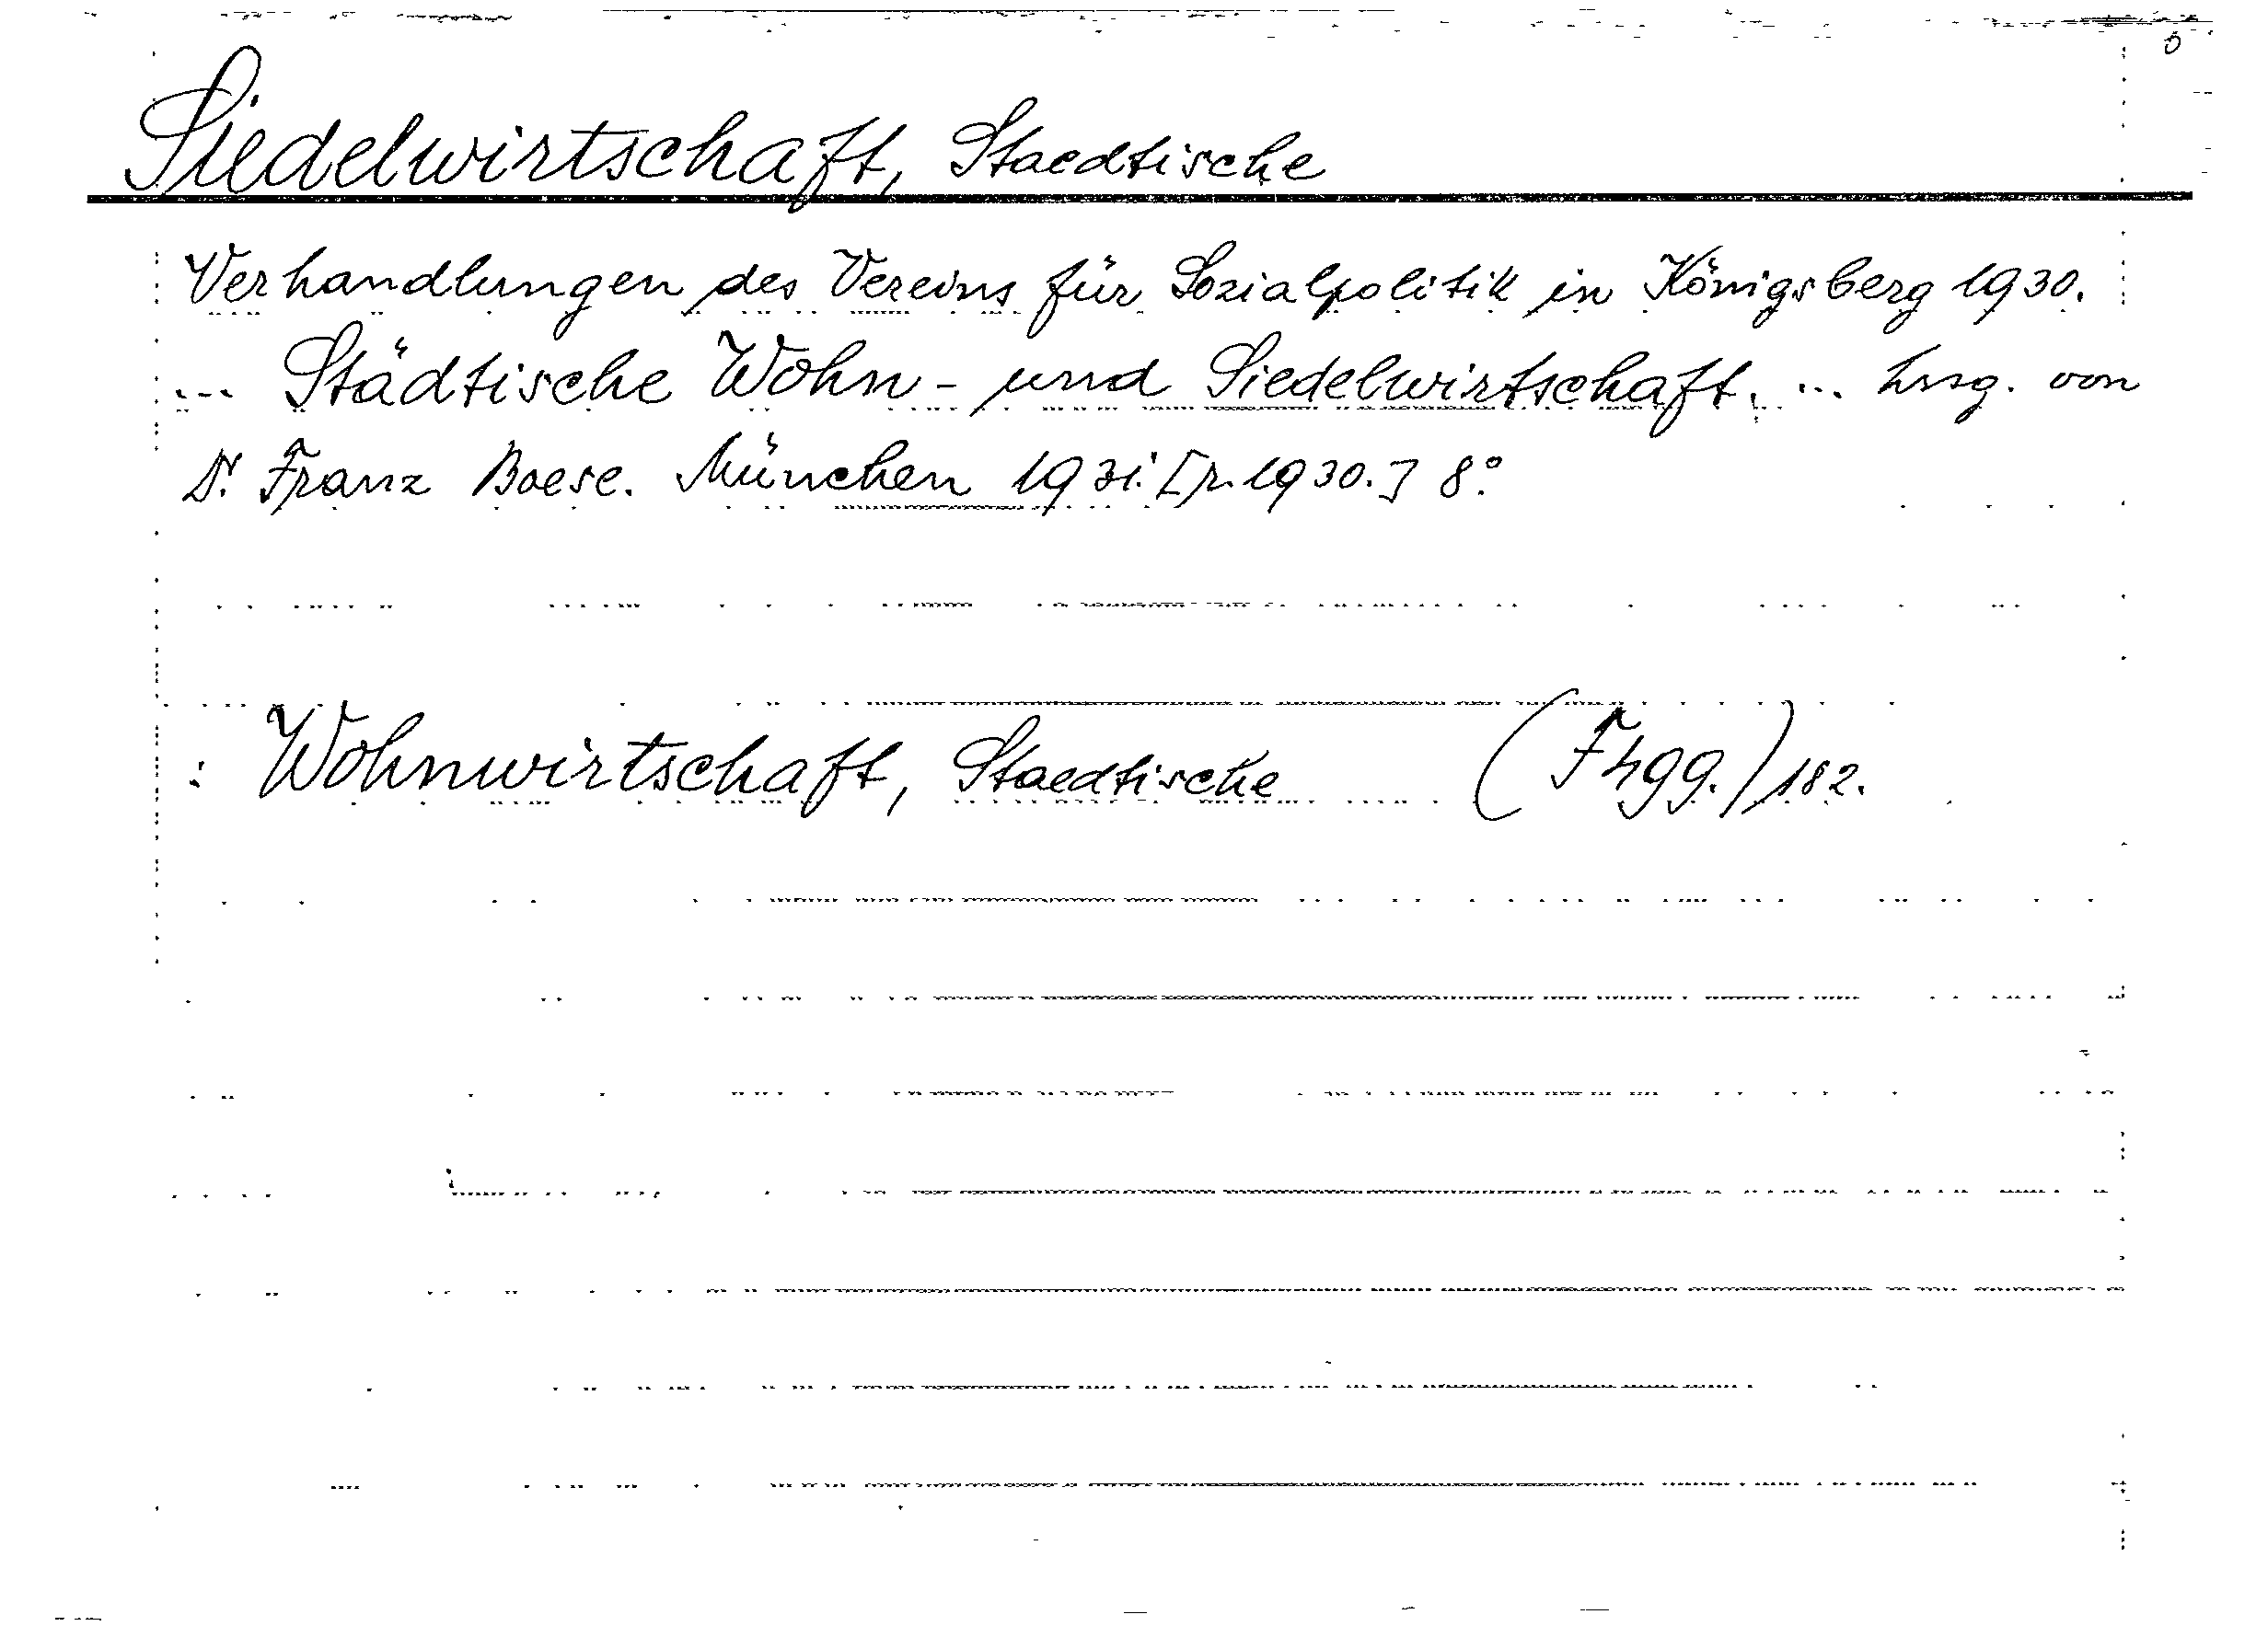 Siedelwirtschaft, Staedtische
Verhandlungen des Vereins für Sozialpolitik in Königsberg 1930.
... Städtische Wohn- und Siedelwirtschaft. ... hrsg. von
Dr. Franz Boese. München 1931. [r. 1930.] 8°.
: Wohnwirtschaft, Staedtische (Fhgg.) 182.